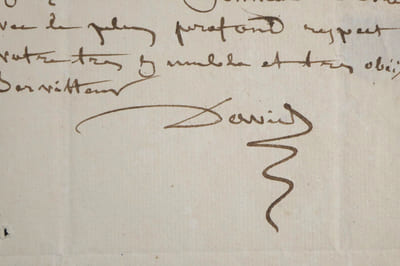 vec le plus profond respect
votre tres humble et tres obéi
Serviteur
David